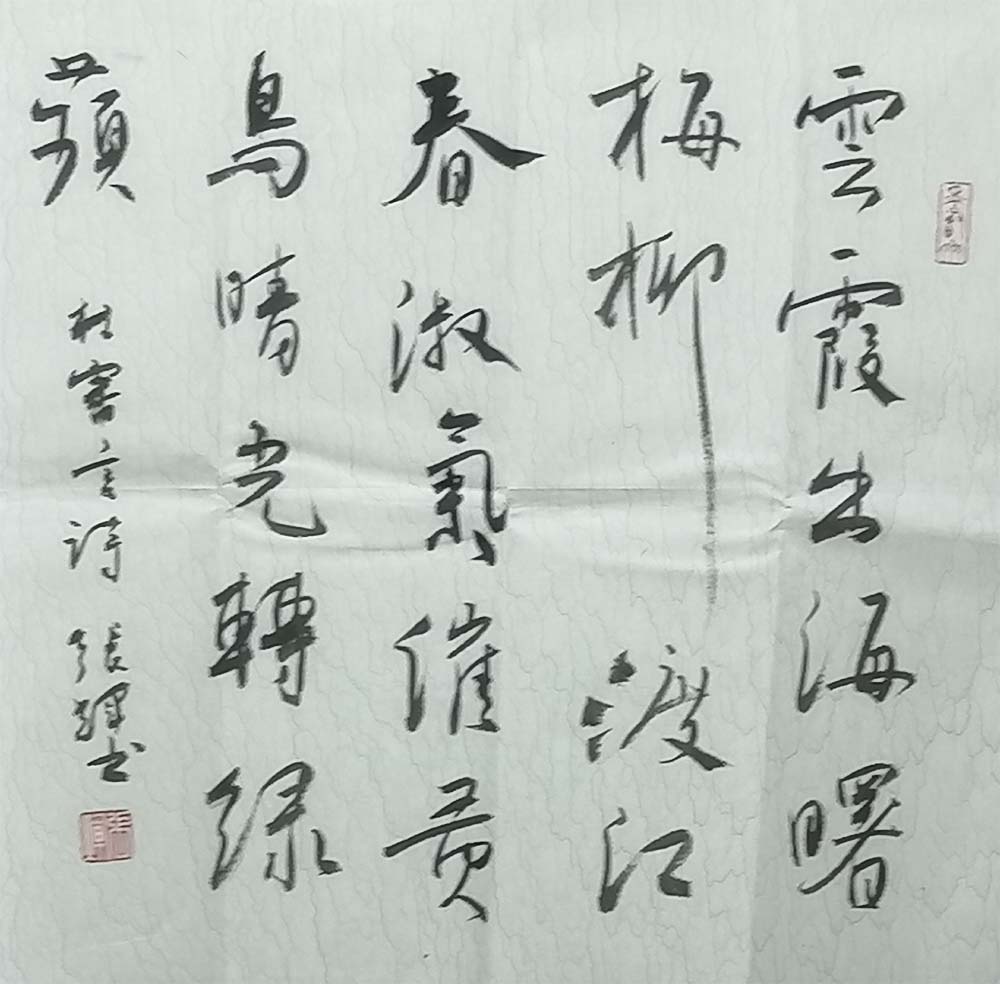 雲霞出海曙
梅柳渡江
春淑氣催黄
鳥晴光轉緑
蘋
杜審言詩 張輝書